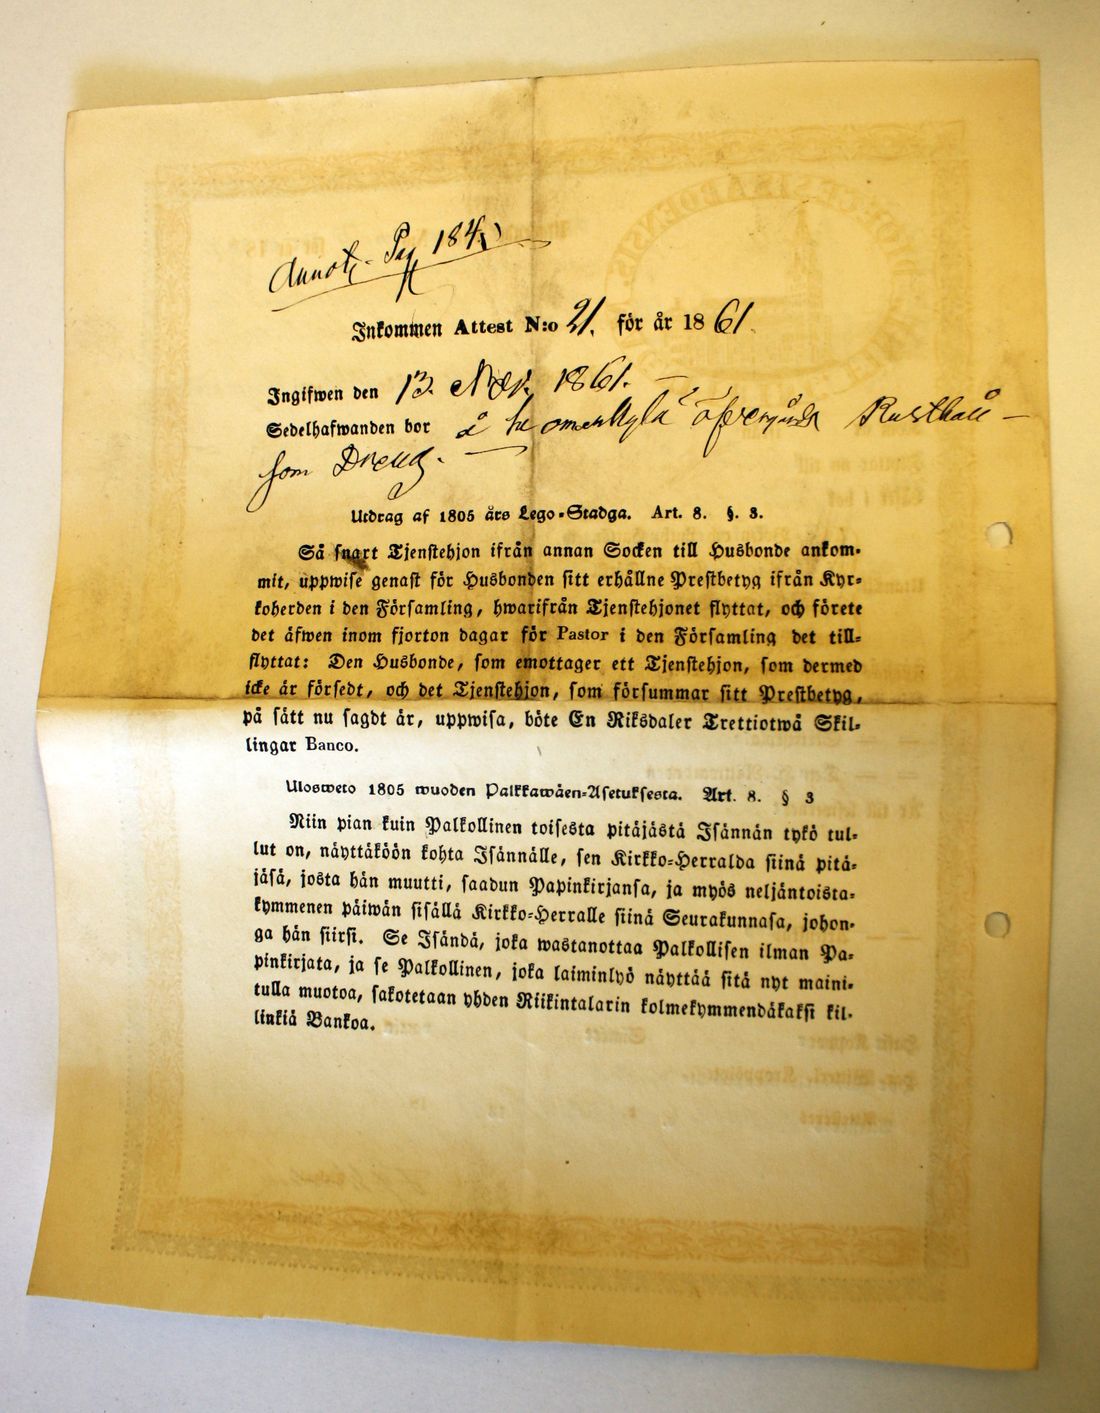 Annot. Pag 184
Inkommen Attest N:o 21. för år 1861.
Ingifwen den 13. Nov. 1861. —
Sedelhafwanden bor å Tuomenkylä öfvergårds Rusthåll —
som Dreng. —
Utdrag af 1805 års Lego-Stadga. Art. 8. §. 3.
Så snart Tjenstehjon ifrån annan Socken till Husbonde ankom-
mit, uppwise genast för Husbonden sitt erhållne Prestbetyg ifrån Kyr-
koherden i den Församling, hwarifrån Tjenstehjonet flyttat, och förete
det äfwen inom fjorton dagar för Pastor i den Församling det till-
flyttat: Den Husbonde, som emottager ett Tjenstehjon, som dermed
icke är försedt, och det Tjenstehjon, som försummar sitt Prestbetyg,
på sätt nu sagdt är, uppwisa, böte En Riksdaler Trettiotwå Skil-
lingar Banco.
Ulosweto 1805 wuoden Palkkawäen-Asetuksesta. Art. 8. § 3
Niin pian kuin Palkollinen toisesta pitäjästä Isännän tykö tul-
lut on, näyttäköön kohta Isännälle, sen Kirkko-Herralda siinä pitä-
jäsä, josta hän muutti, saadun Papinkirjansa, ja myös neljäntoista-
kymmenen päiwän sisällä Kirkko-Herralle siinä Seurakunnasa, johon-
ga hän siirsi. Se Isändä, joka wastanottaa Palkollisen ilman Pa-
pinkirjata, ja se Palkollinen, joka laiminlyö näyttää sitä nyt maini-
tulla muotoa, sakotetaan yhden Riikintalarin kolmekymmendäkaksi kil-
linkiä Bankoa.